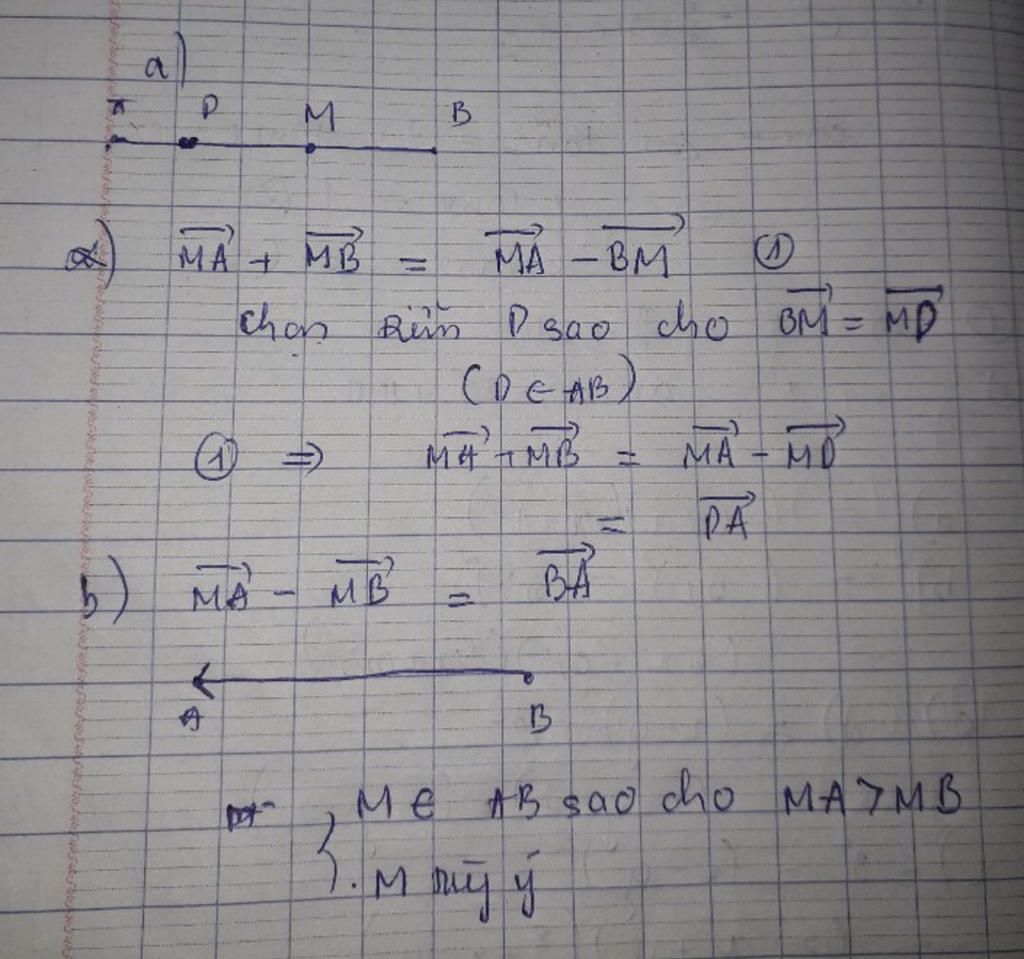 a)
A D M B
a) \overrightarrow{MA} + \overrightarrow{MB} = \overrightarrow{MA} - \overrightarrow{BM} ①
chọn điểm D sao cho \overrightarrow{BM} = \overrightarrow{MD}
(D ∈ AB)
① ⇒ \overrightarrow{MA} + \overrightarrow{MB} = \overrightarrow{MA} - \overrightarrow{MD}
= \overrightarrow{DA}
b) \overrightarrow{MA} - \overrightarrow{MB} = \overrightarrow{BA}
A B
M ∈ AB sao cho MA > MB
. M tùy ý